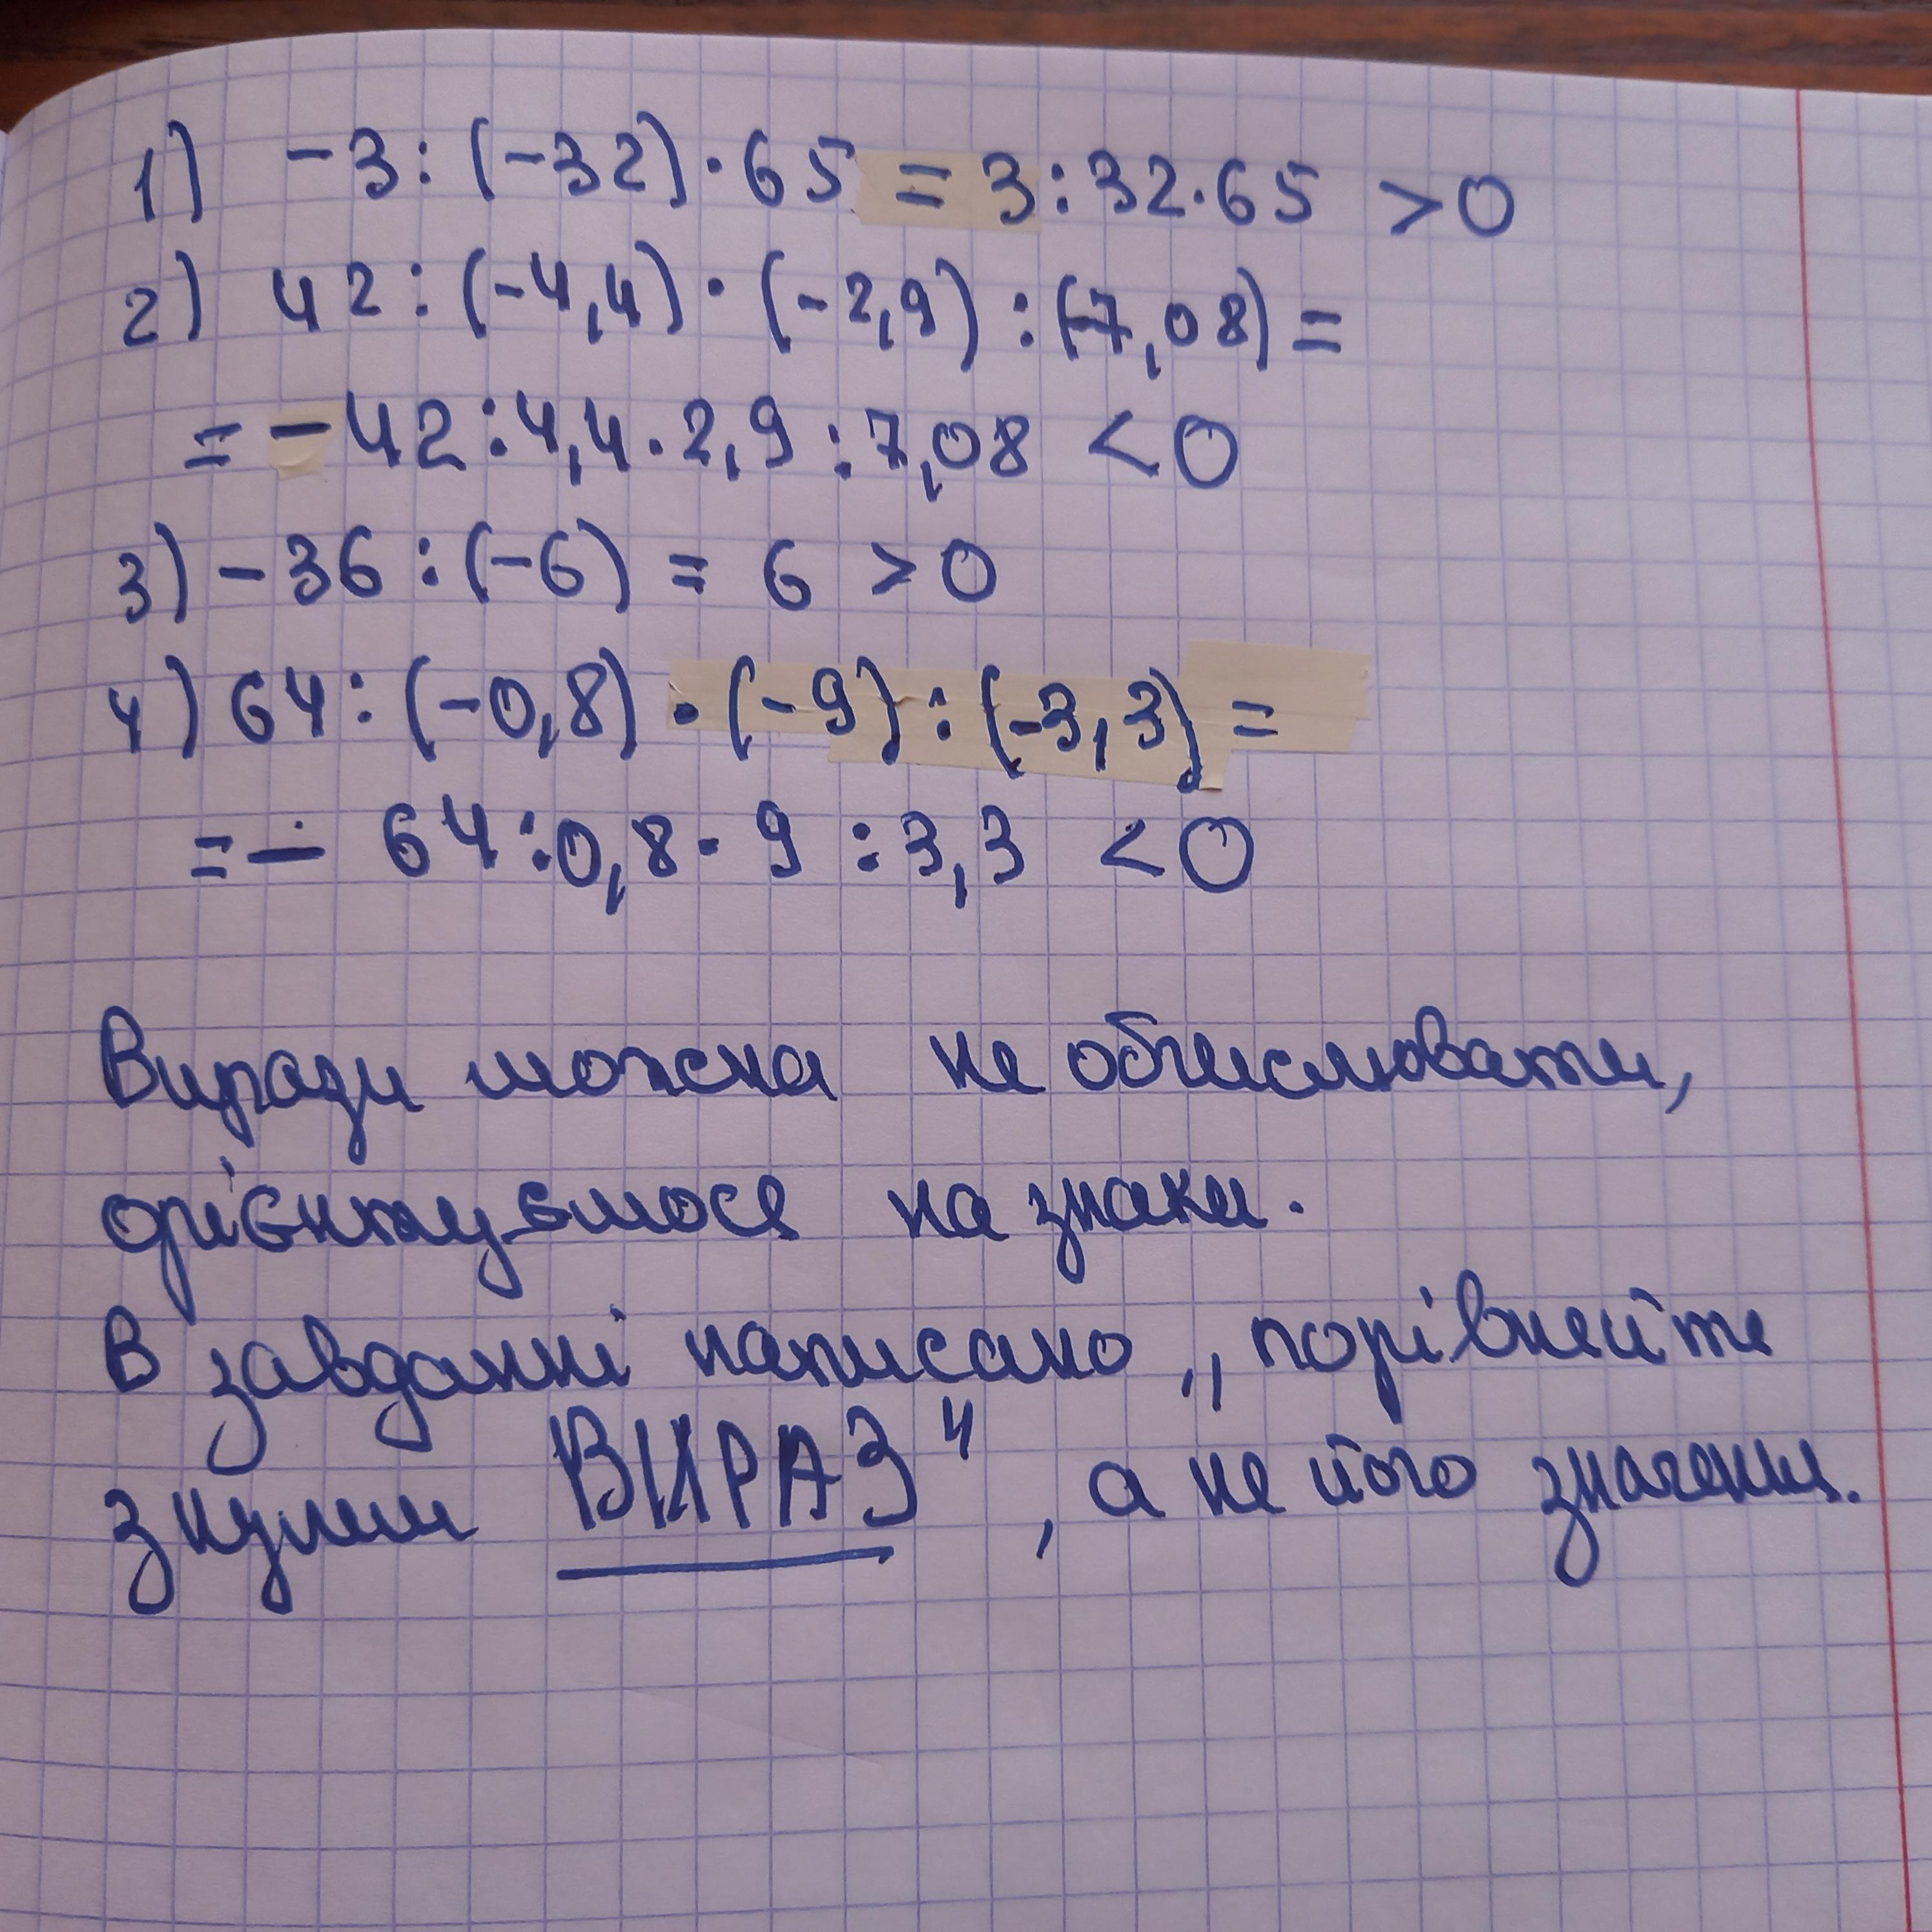 1) -3:(-32)·65 = 3:32·65 >0
2) 42:(-4,4)·(-2,9):(-7,08)=
=-42:4,4·2,9:7,08 <0
3) -36:(-6) = 6 >0
4) 64:(-0,8)·(-9):(-3,3)=
=- 64:0,8·9:3,3 <0
Вирази можна не обчислювати,
орієнтуємося на знаки.
В завданні написано „порівняйте
з нулем ВИРАЗ", а не його значення.